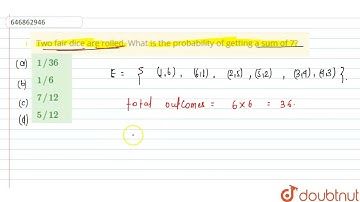 646862946
Two fair dice are rolled. What is the probability of getting a sum of 7?
(a) 1/36
(b) 1/6
(c) 7/12
(d) 5/12
E = { (1,6), (6,1), (2,5), (5,2), (3,4), (4,3) }.
total outcomes = 6 x 6 = 36.
doubtnut